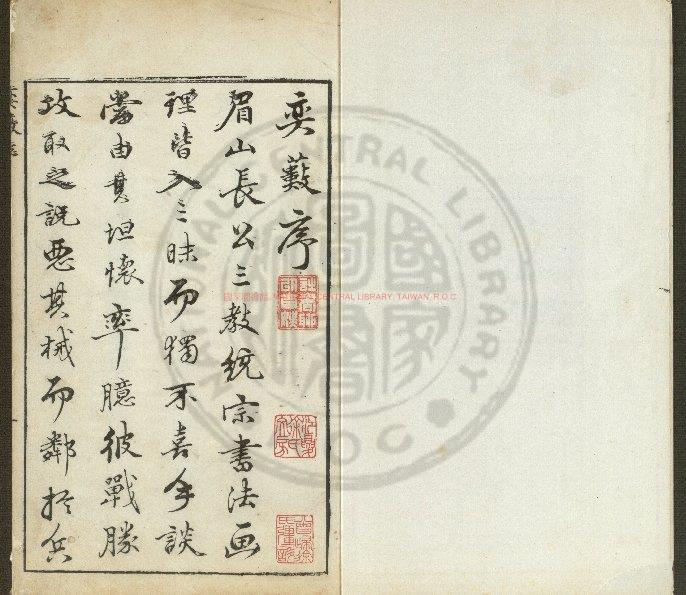 奕藪序
眉山長公三教統宗書法画
理皆入三昧而獨不喜手談
當由其坦懷率臆彼戰勝
攻取之説惡其械而鄰於兵
國家圖書館 NATIONAL CENTRAL LIBRARY, TAIWAN, R.O.C
NATIONAL CENTRAL LIBRARY